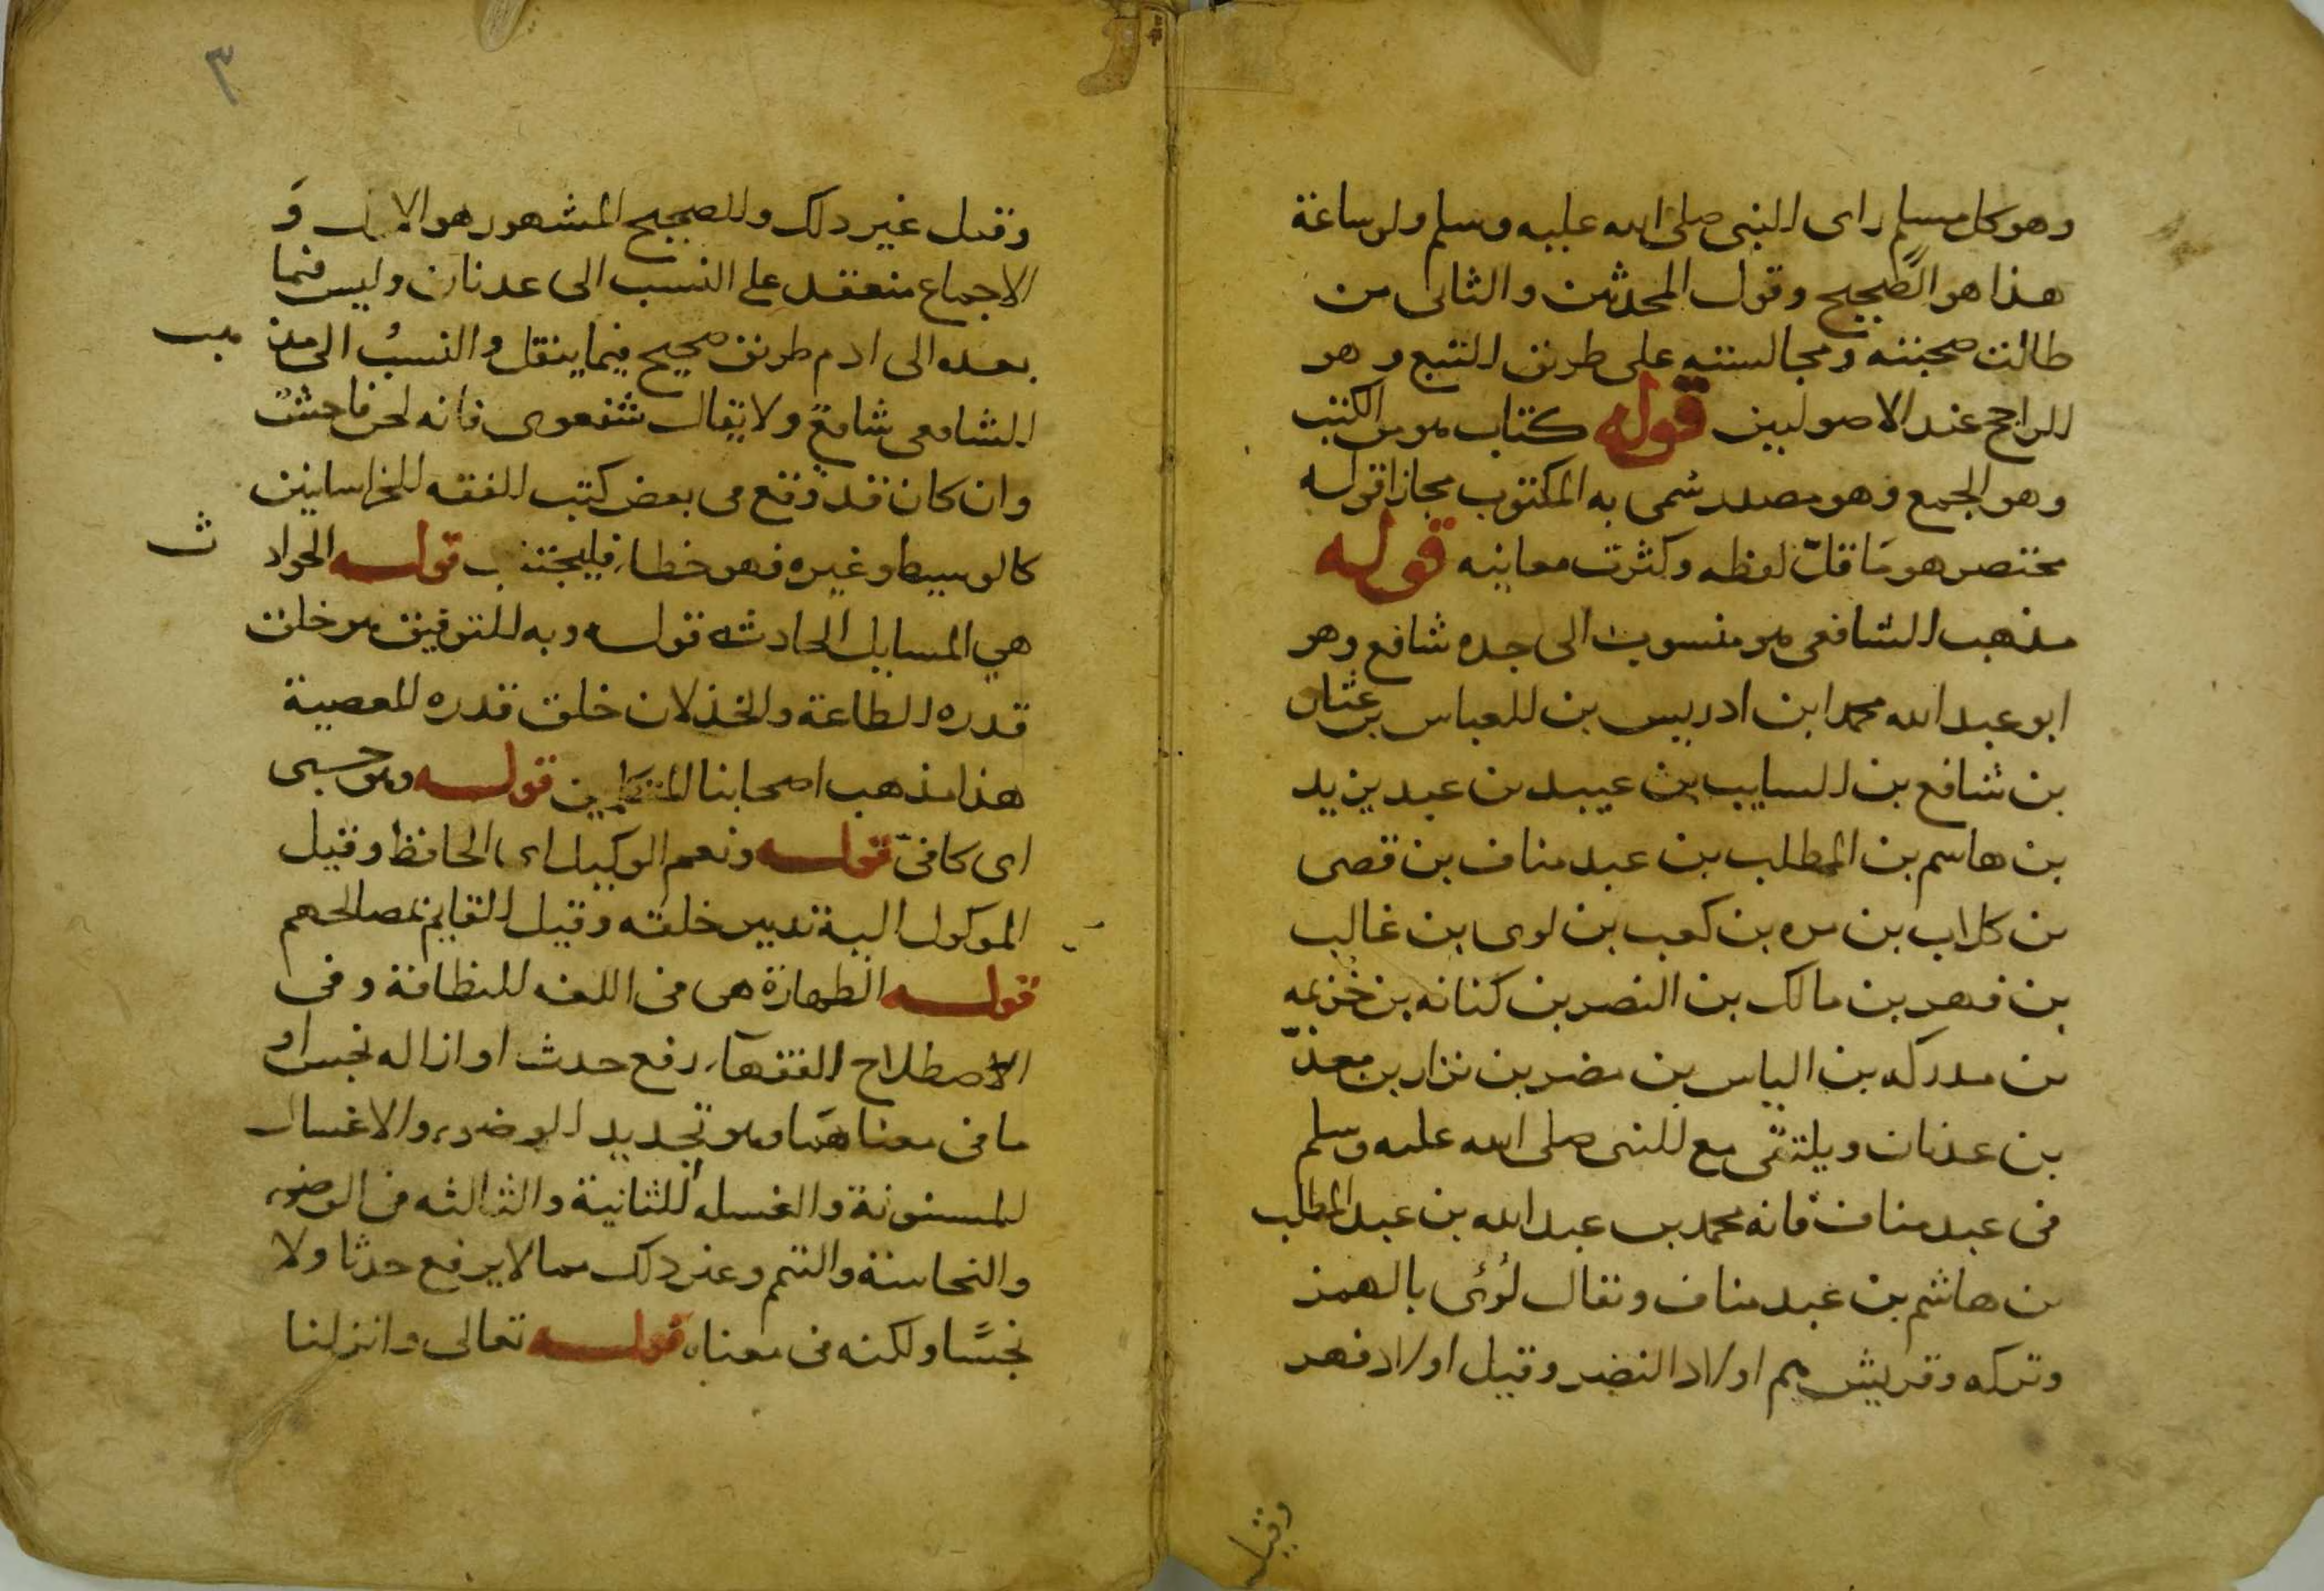 وهو كل مسلم راى النبى صلى الله عليه وسلم ولو ساعة
هذا هو الصحيح وقول المحدثين والثانى من
طالت صحبته ومجالسته على طريق التتبع وهو
الراجح عند الاصوليين قوله كتاب هو من الكتب
وهو الجمع وهو مصدر سُمى به المكتوب مجازا قوله
مختصر هو مَا قلّ لفظه وكثرت معانيه قوله
مذهب الشافعى هو منسوب الى جده شافع وهو
ابو عبد الله محمد ابن ادريس بن العباس بن عثمان
بن شافع بن السايب بن عبيد بن عبد يزيد
بن هاسم بن المطلب بن عبد مناف بن قصى
بن كلاب بن مره بن كعب بن لوى بن غالب
بن فهر بن مالك بن النضر بن كنانه بن خُزيمه
بن مدركه بن الياس بن مضر بن نزار بن معدّ
بن عدنان ويلتقى مع النبى صلى الله عليه وسلم
فى عبد مناف فانه محمد بن عبد الله بن عبد المطلب
بن هاشم بن عبد مناف ويقال لُؤى بالهمز
وتركه وقريش هم اولاد النضر وقيل اولاد فهر
وقيل
٣
وقيل غير ذلك والصحيح المشهور هو الاول وَ
الاجماع منعقد على النسب الى عدنان وليس فيما
بعده الى ادم طريق صحيح فيما ينقل والنسبُ الى مذهب
الشافعى شافعى ولا يقال شفعوى فانه لحن فاحش
وان كان قد وقع فى بعض كتب الفقه للخراسانيين
كالوسيط وغيره فهو خطاء فليجتنب قوله الحوادث
هي المسايل الحادثه قوله وبه التوفيق هو خلق
قدره الطاعة والخذلان خلق قدره المعصية
هذا مذهب اصحابنا المتكلمين قوله وهو حسبى
اى كافىّ قوله ونعم الوكيل اى الحافظ وقيل
الموكول اليه تدبير خلقه وقيل القايم بمصالحهم
قوله الطهارة هى فى اللغه النظافة وفى
الاصطلاح الفقهآء رفع حدث او ازاله نجس او
ما فى معناهمَا وهو تجديد الوضوء والاغسال
المسنونة والغسله الثانية والثالثه فى الوضوء
والنجاسة والتيمم وغير ذلك مما لا يرفع حدثا ولا
نجسًا ولكنه فى معناه قوله تعالى وانزلنا